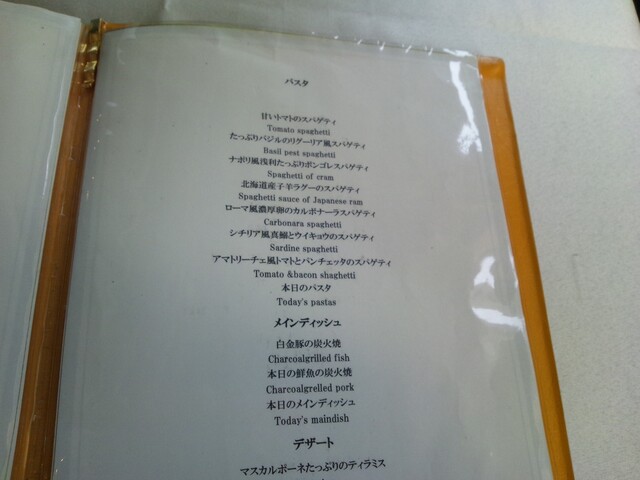 パスタ
甘いトマトのスパゲティ
Tomato spaghetti
たっぷりバジルのリグーリア風スパゲティ
Basil pest spaghetti
ナポリ風浅利たっぷりボンゴレスパゲティ
Spaghetti of cram
北海道産子羊ラグーのスパゲティ
Spaghetti sauce of Japanese ram
ローマ風濃厚卵のカルボナーラスパゲティ
Carbonara spaghetti
シチリア風真鰯とウイキョウのスパゲティ
Sardine spaghetti
アマトリーチェ風トマトとパンチェッタのスパゲティ
Tomato &bacon shaghetti
本日のパスタ
Today's pastas
メインディッシュ
白金豚の炭火焼
Charcoalgrilled fish
本日の鮮魚の炭火焼
Charcoalgrelled pork
本日のメインディッシュ
Today's maindish
デザート
マスカルポーネたっぷりのティラミス